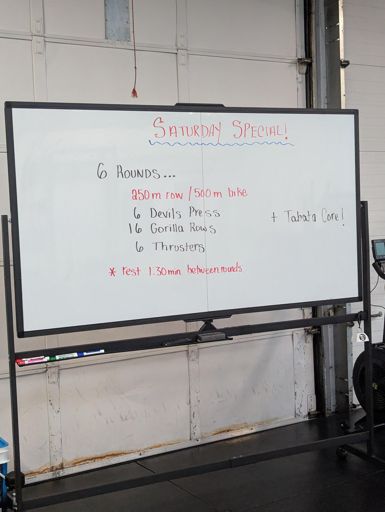 SATURDAY SPECIAL!
6 ROUNDS...
250m row / 500m bike
6 Devils Press
16 Gorilla Rows
6 Thrusters
+ Tabata Core!
* rest 1:30min between rounds